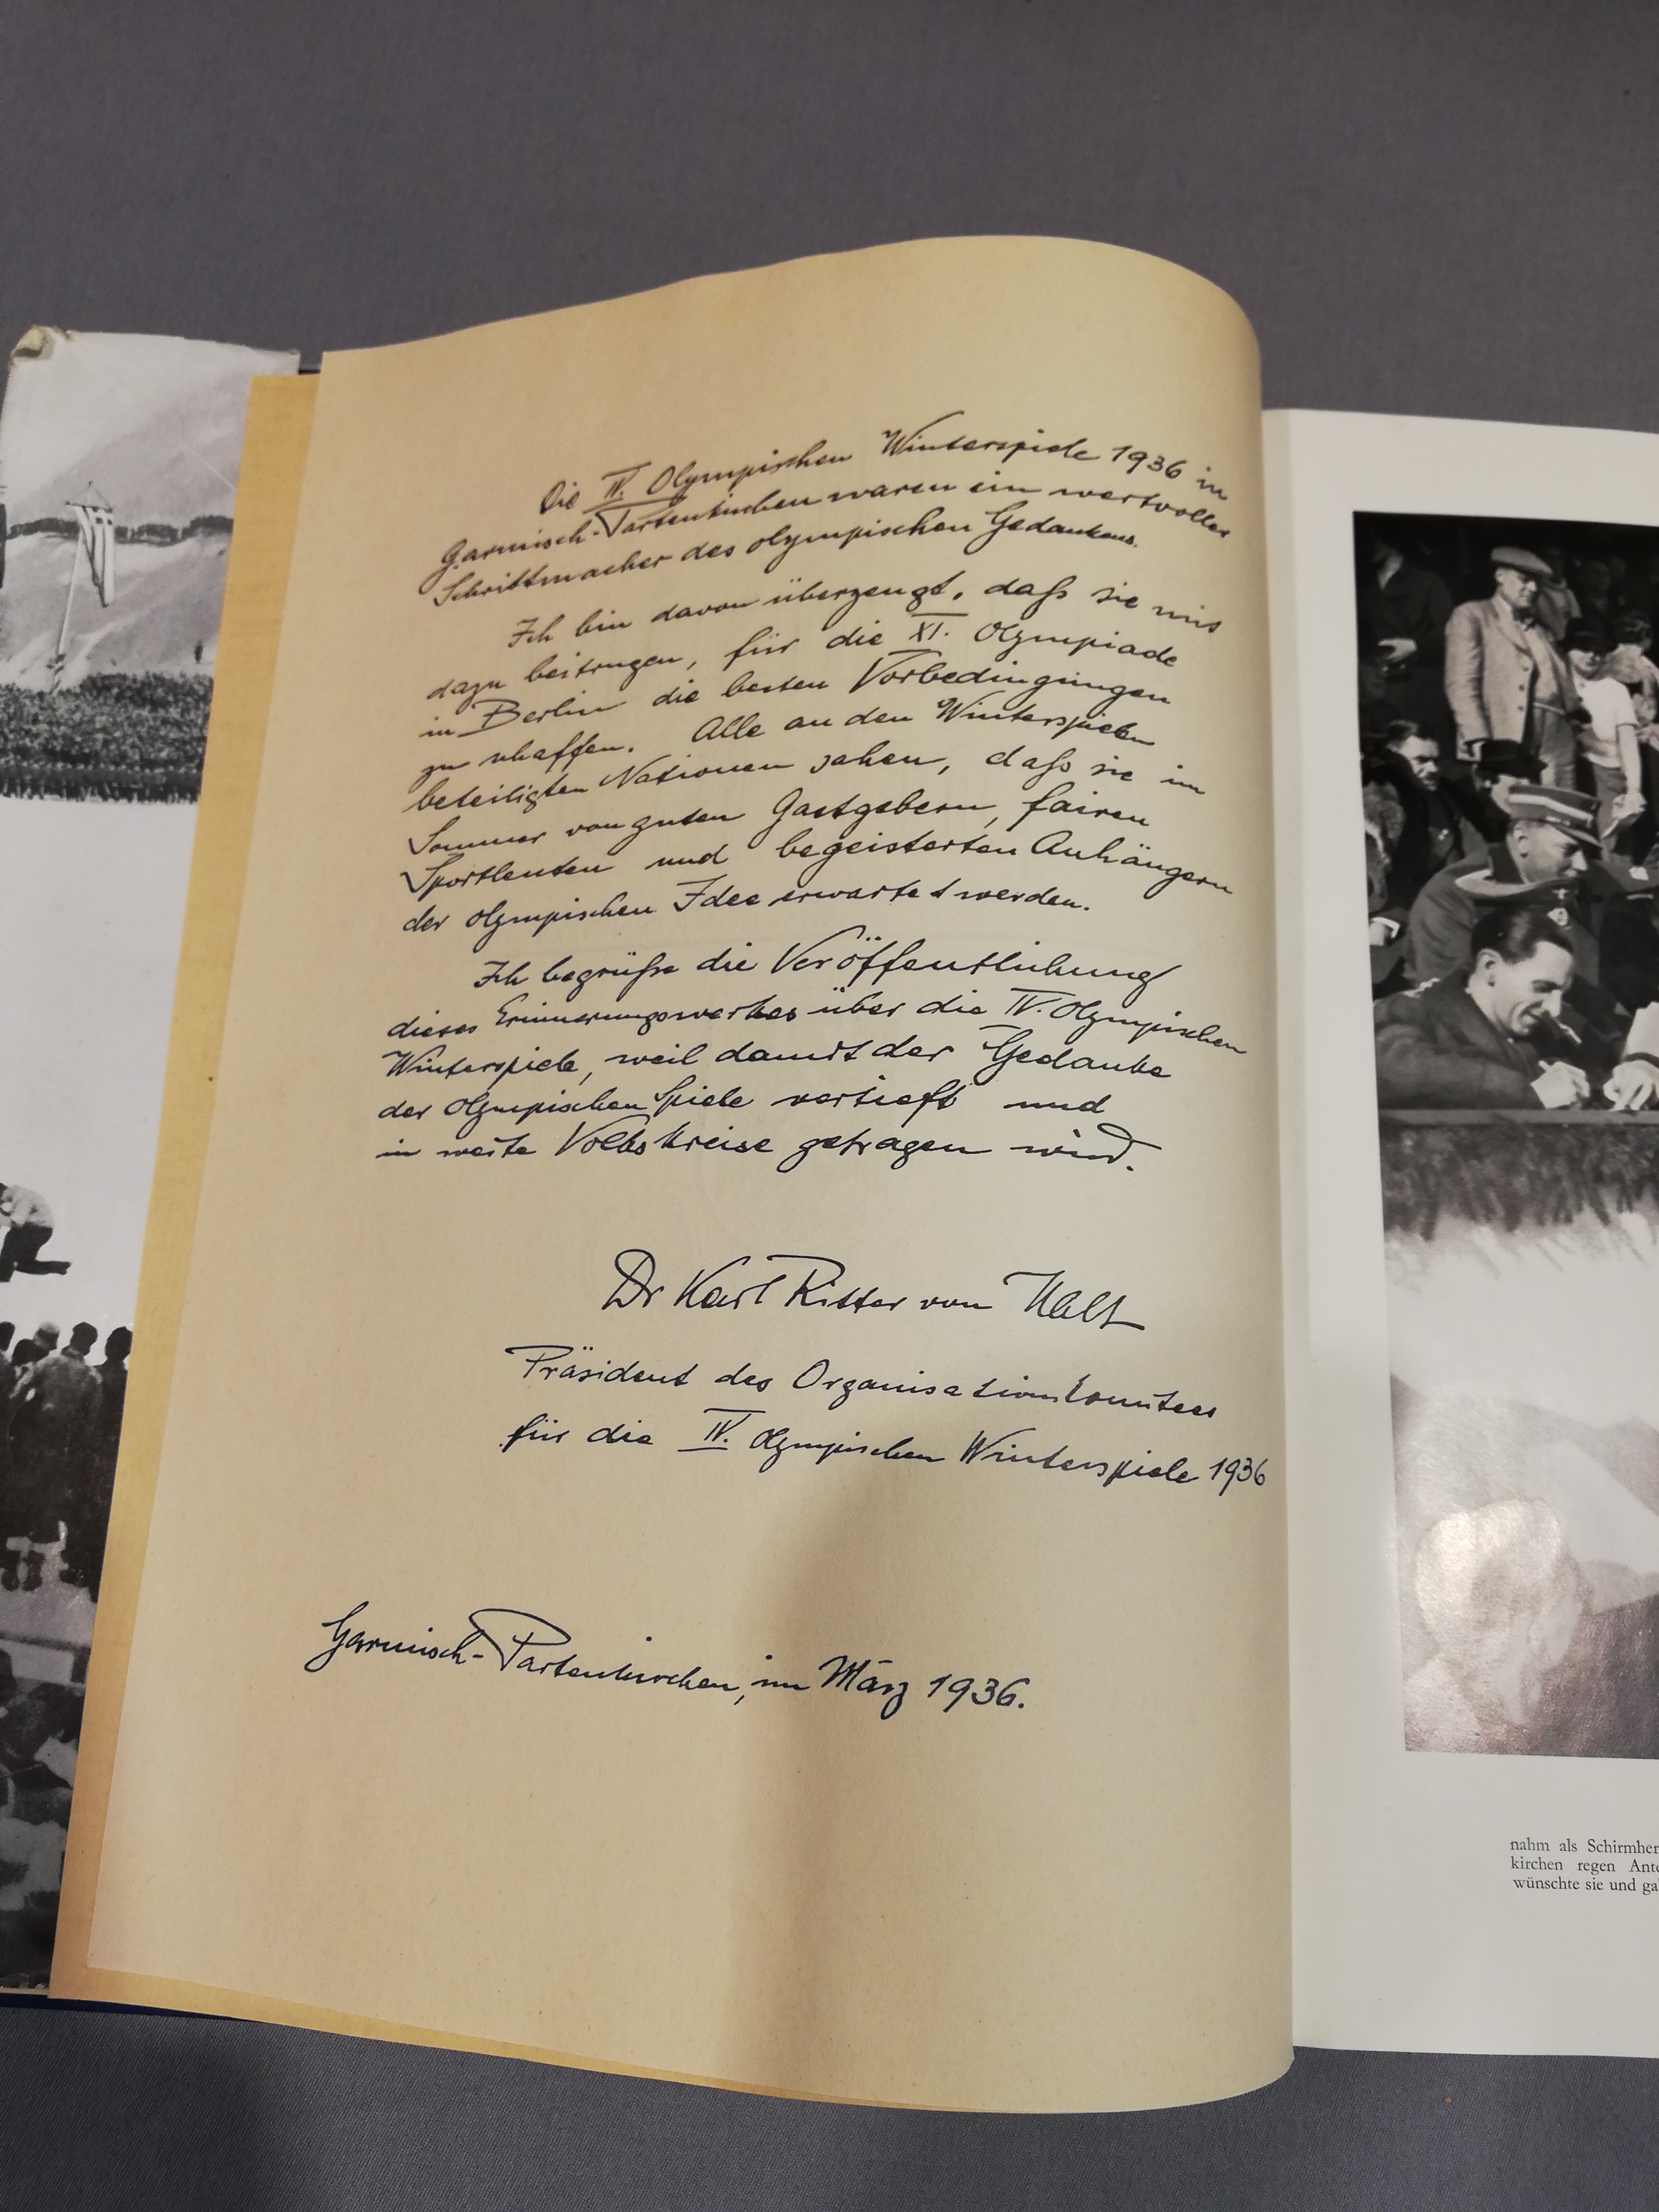 Die IV. Olympischen Winterspiele 1936 in
Garmisch-Partenkirchen waren ein wertvoller
Schrittmacher des olympischen Gedankens.
Ich bin davon überzeugt, daß sie mit
dazu beitrugen, für die XI. Olympiade
in Berlin die besten Vorbedingungen
zu schaffen. Alle an den Winterspielen
beteiligten Nationen sahen, daß sie im
Sommer von guten Gastgebern, fairen
Sportleuten und begeisterten Anhängern
der olympischen Idee erwartet werden.
Ich begrüße die Veröffentlichung
dieses Erinnerungswerkes über die IV. Olympischen
Winterspiele, weil damit der Gedanke
der Olympischen Spiele vertieft und
in weite Volkskreise getragen wird.
Dr Karl Ritter von Halt
Präsident des Organisationskomitees
für die IV. Olympischen Winterspiele 1936
Garmisch-Partenkirchen, im März 1936.
nahm als Schirmher
kirchen regen Ante
wünschte sie und ga